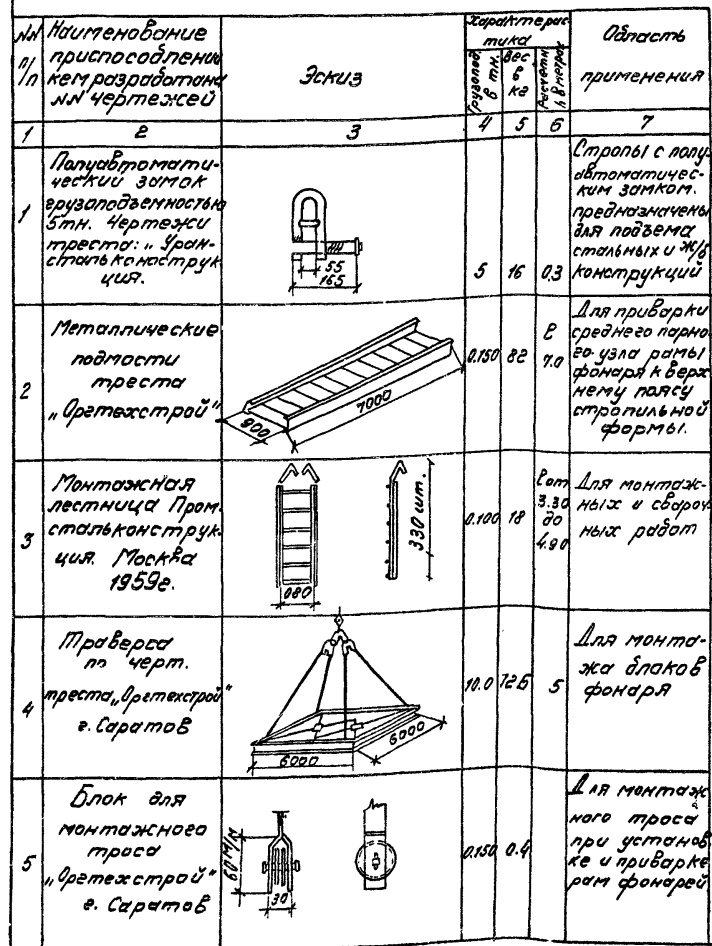 NN п/п
Наименование
приспособлени
кем разработана
NN чертежей
Эскиз
Характерис
тика
Грузопод. в тн.
вес в кг
Расчетн. h в метрах
Область
применения
1 2 3 4 5 6 7
1
Полуавтомати-
ческий замок
грузоподъемностью
5тн. Чертежи
треста: „Урал-
стальконструк
ция.
55
165
5 16 0,3
Стропы с полу-
автоматичес-
ким замком.
предназначены
для подъема
стальных и ж/б
конструкций
2
Металлические
подмости
треста
„Оргтехстрой"
900
7000
0.150 82 ℓ 7.0
Для приварки
среднего парно-
го узла рамы
фонаря к верх
нему поясу
стропильной
формы.
3
Монтажная
лестница Пром
стальконструк-
ция. Москва
1959г.
080
330 шт.
0.100 18 ℓ от 3.30 до 4.90
Для монтаж-
ных и свароч
ных работ
4
Траверса
по черт.
треста„Оргтехстрой"
г. Саратов
6000
6000
10.0 726 5
Для монта-
жа блаков
фонаря
5
Блок для
монтажного
троса
„Оргтехстрой"
г. Саратов
60 м/м
30
0.150 0.4
Для монтаж
ного троса
при установ
ке и приварке
рам фонарей